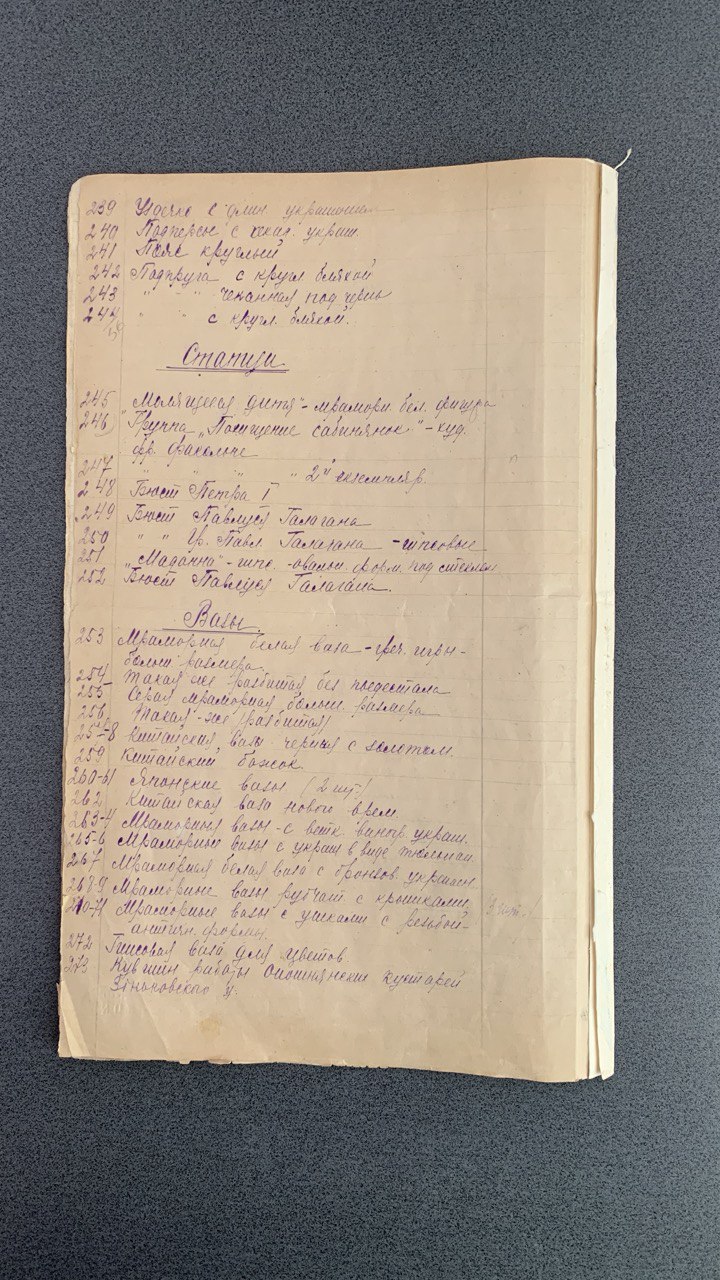 239 Уздечка с
240 Подперсье с чекан. украш.
241 Пояс круглый
242 Подпруга с кругл бляхой
243 " " " чеканная под чернь
244 " " с кругл. бляхой.
Статуи
245 "Молящееся дитя" - мрамори. бел. фигура
246 Группа "Похищение сабинянок" - худ.
247 " " " " 2й экземпляр.
248 Бюст Петра I
249 Бюст Павлуся Галагана
250 " " Гр. Павл. Галагана - гипсовые
251 "Мадонна" - гипс. - овальн. форм. под стеклом
252 "Бюст Павлуся Галагана.
Вазы.
253 Мраморная белая ваза - греч. игры -
больш размера.
254 Такая же разбитая без пьедестала
255 Серая мраморная больш. размера
256 Такая-же (разбитая)
257-8 Китайская вазы черная с золотом.
259 Китайский божок.
260-61 Японские вазы (2 шт.)
262 Китайская ваза нового врем.
263-4 Мраморныя вазы с ветк виногр. украш.
265-6 Мраморныи вазы с украш в виде тюльпан.
267 Мраморная белая ваза с бронзов. украшен.
268-9 Мраморные вазы рубчат с крышками
270-71 Мраморные вазы с ушками с резьбой -
антич. формы.
272 Гипсовая ваза для цветов
273 Кувшин работы Опошнянских кустарей
Зеньковского у.